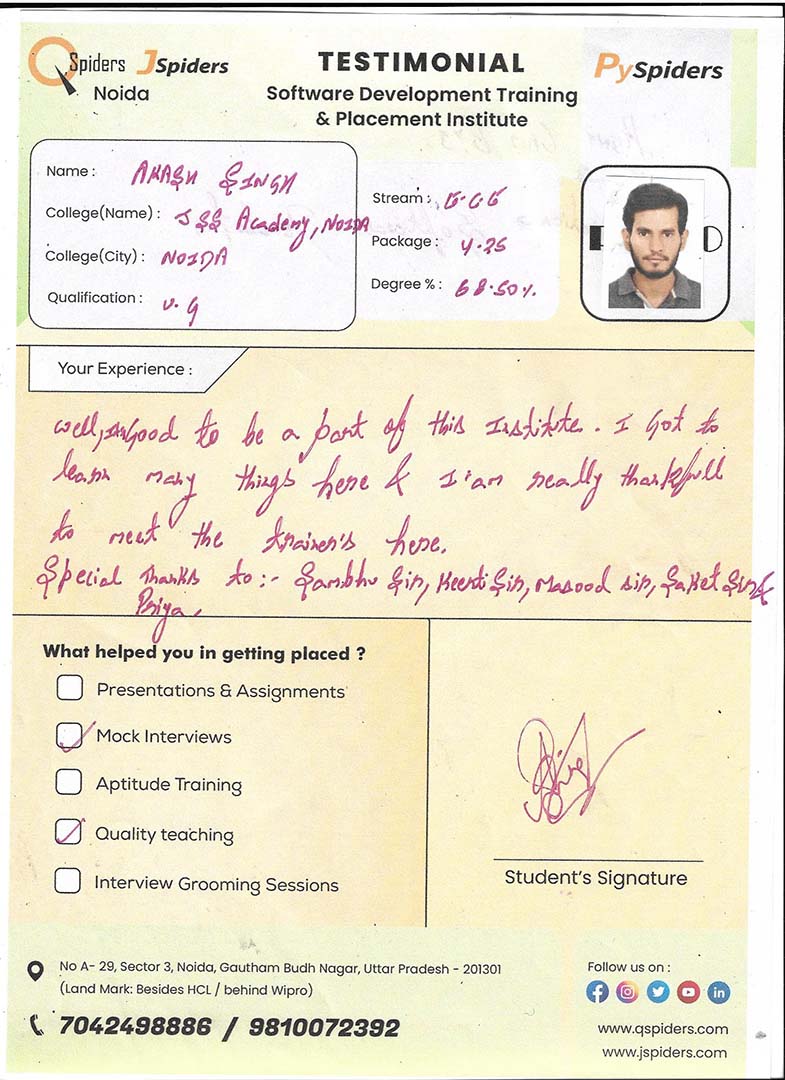 QSpiders JSpiders
Noida
TESTIMONIAL
Software Development Training
& Placement Institute
PySpiders
Name : AKASH SINGH
College(Name) : JSS Academy, NOIDA
College(City) : NOIDA
Qualification : U.G
Stream : E.C.E
Package : 4.25
Degree % : 68.50%
Your Experience :
well, Good to be a part of this Institute. I Got to
learn many things here & I'am really thankfull
to meet the trainer's here.
Special Thanks to :- Sambhu Sir, Keerti Sir, Masood sir, Saket Sir &
Priya.
What helped you in getting placed ?
Presentations & Assignments
Mock Interviews
Aptitude Training
Quality teaching
Interview Grooming Sessions
Student's Signature
No A- 29, Sector 3, Noida, Gautham Budh Nagar, Uttar Pradesh - 201301
(Land Mark: Besides HCL / behind Wipro)
7042498886 / 9810072392
Follow us on :
www.qspiders.com
www.jspiders.com